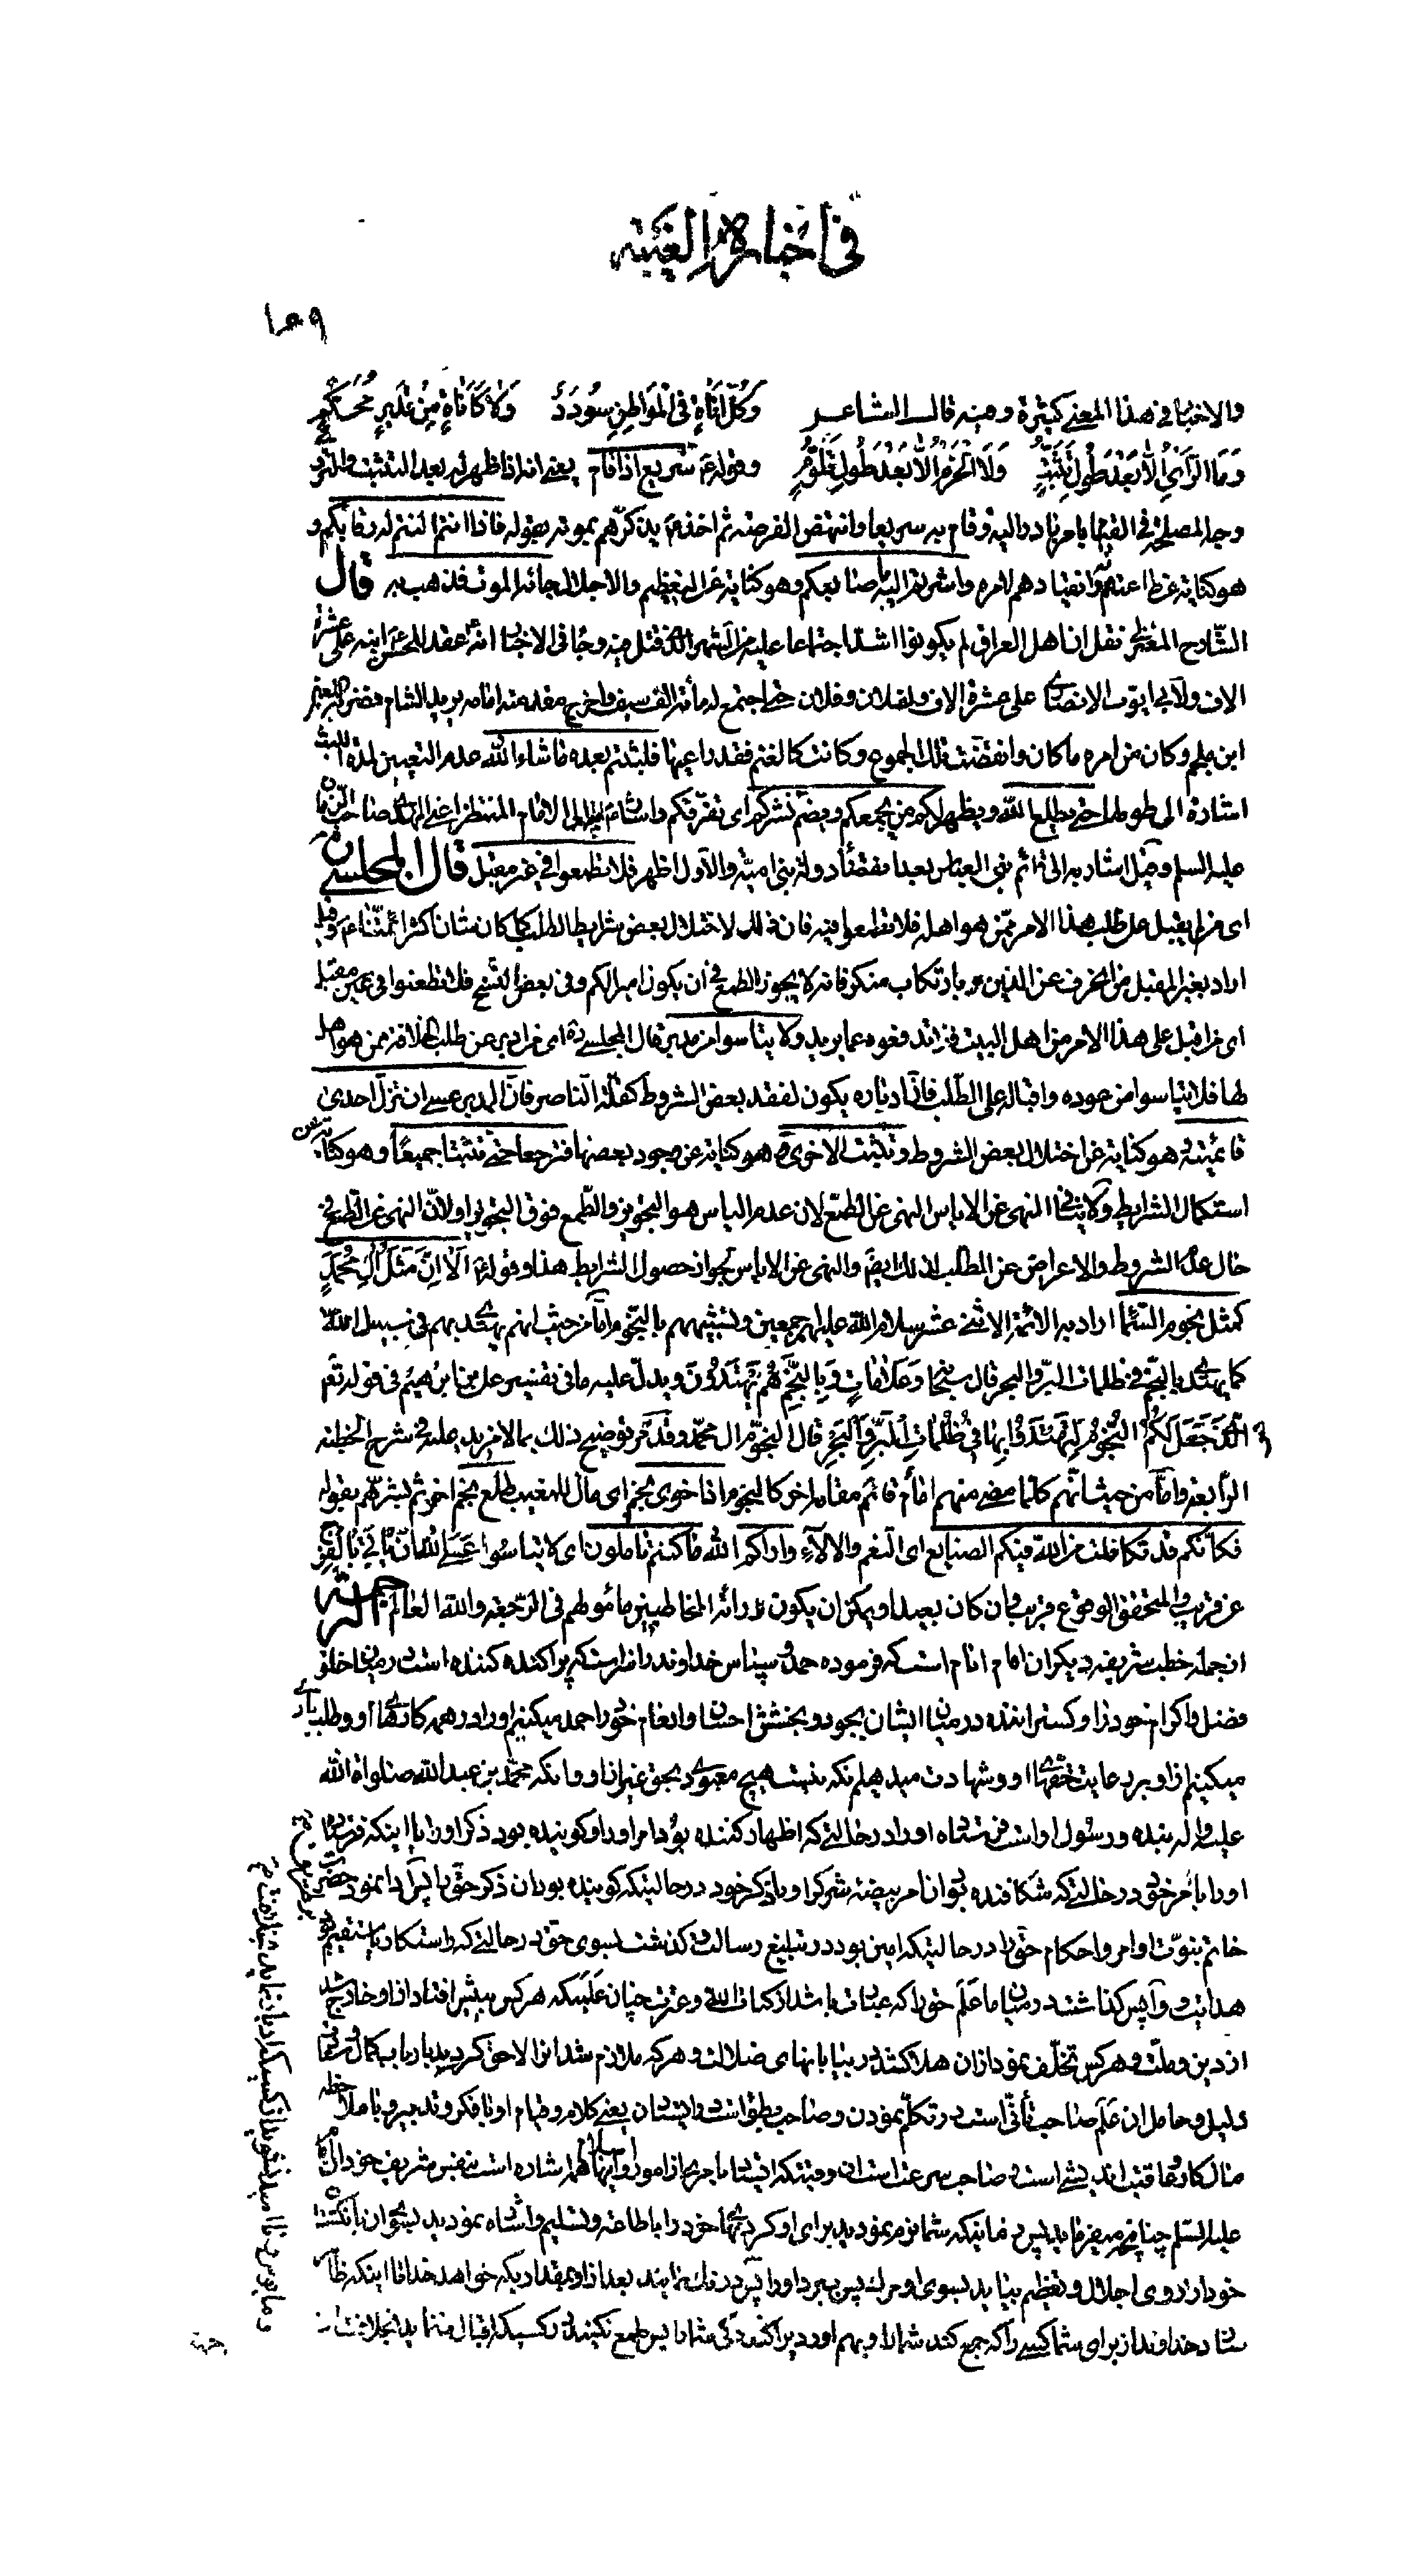 في اخباره عن الغيب
١٥٩
والاخبار في هذا المعنى كثيرة ومنه قال الشاعر وَكُلُّ اَناةٍ فِى الْمَواطِنِ سُودَدٌ وَلا كَاَناةٍ مِنْ مُحْكَمٍ
وَمَا الرَّأىُ اِلّا بَعْدَ طُولِ تَثَبُّتٍ وَلَا الْحَزْمُ اِلّا بَعْدَ طُولِ تَلَوُّمٍ وقوله ع سريع اذا قام يعنى انه اذا ظهر له بعد التثبت والتروّى
وجه المصلحة في القيام بامر بادر اليه وقام به سريعا وانتهض الفرصة ثم اخذ ع يذكّرهم بموته بقوله فاذا انتم النتم له رقابكم و
هو كناية عن اطاعتهم وانقيادهم لامره واشرتم اليه باصابعكم وهو كناية عن التعظيم والاجلال جائه الموت فذهب به قال
الشّارح المعتزلى نقل ان اهل العراق لم يكونوا اشدّ اجتماعا عليه من الشهر الذى قتل فيه وجاء في الاخبار انّه ع عقد للحسن ع ابنه على عشرة
الاف ولابى ايوّب الانصارى على عشرة الاف ولفلان وفلان حتى اجتمع له مأئة الف سيف واخرج مقدمته امامه يريد الشام فضربه اللعين
ابن ملجم وكان من امره ما كان وانفضّت تلك الجموع وكانت كالغنم فقد راعيها فلبثتم بعده ما شاء الله عدم التعيين لمدة اللبث
اشارة الى طولها حتى يطلع الله ويظهر لكم من يجمعكم ويضمّ نشركم اى تفرّقكم واشار ع به الى الامام المنتظر اعنى المهدى صاحب الزمان
عليه السلم وقيل اشار به الى قائم بنى العباس بعد انقضاء دولة بنى امية والاول اظهر فلا تطمعوا في غير مقبل قال المجلسى
اى من لم يقبل على طلب هذا الامر ممّن هو اهله فلا تطمعوا فيه فان ذلك لاختلال بعض شرايط الطلب كما كان شان اكثر ائمّتنا ع وقيل
اراد بغير المقبل من انحرف عن الدين بارتكاب منكر فانه لا يجوز الطمع في ان يكون اميرا لكم وفى بعض النسخ فلا تطعنوا في عين مقبل
اى من اقبل على هذا الامر من اهل البيت فلا تدفعوه عما يريد ولا ييأسوا من مدبر قال المجلسى ره اى من ادبر عن طلب الخلافة ممن هو اهل
لها فلا تيأسوا من عوده واقباله على الطّلب فانّ ادباره يكون لفقد بعض الشروط كقلّة النّاصر فانّ المدبر عسى ان تزلّ احدى
قائمتيه وهو كناية عن اختلال بعض الشروط وتثبت الاخرى وهو كناية عن وجود بعضها فترجعا حتى تثبتا جميعًا وهو كناية عن
استكمال الشرايط ولا ينافى النهى عن الاياس النهى عن الطمع لان عدم الياس هو التجويز والطّمع فوق التجويز او لانّ النهى عن الطّمع فى
حال عدم الشروط والاعراض عن الطلب لذلك ايضا والنهى عن الاياس لجواز حصول الشرايط هذا وقوله ع اَلا اِنَّ مَثَلَ الِ مُحَمَّدٍ
كمثل نجوم السّماء اراد به الائمة الاثنى عشر سلام الله عليهم اجمعين وتشبيههم بالنجوم امّا من حيث انهم يهتدى بهم في سبيل الله
كما يهتدى بالنجم في ظلمات البرّ والبحر قال سبحانه وَعَلاماتٍ وَبِالنَّجْمِ هُمْ يَهْتَدُونَ ويدلّ عليه ما في تفسير على بن ابراهيم في قوله تعم
الَّذى جَعَلَ لَكُمُ النُّجُومَ لِتَهْتَدُوا بِها فِى ظُلُماتِ الْبَرِّ وَالْبَحْرِ قال النجوم ال محمّد وقد مرّ توضيح ذلك بما لا مزيد عليه في شرح الخطبة
الرابعة وامّا من حيث انّهم كلما مضى منهم امام قام مقامه اخر كالنجوم اذا خوى نجم اى مال للمغيب طلع نجم اخر ثم بشّرهم بقوله
فكانّكم قد تكاملت من الله فيكم الصنايع اى النّعم والالآء واراكم الله ما كنتم تاملون اى لا تياسُوا عَسَى الله اَنْ يَأتِىَ بِالْفَرَج
عن قريب والمتحقق الوقوع قريب وان كان بعيدا ويمكن ان يكون ارائة المخاطبين مامولهم في الرّجعة والله العالم الترجمة
از جمله خطب شريفه ديكر ان امام انام است كه فرموده حمد وسپاس خداوند را سزاست كه پراكنده كننده است در ميان خلق
فضل واكرام خود را وكستراننده در ميان ايشان بجود وبخشش احسان وانعام خود را حمد ميكنيم او را در همه كارهاى او وطلب يارى
ميكنيم از او بر رعايت حقهاى او وشهادت ميدهيم كه نيست هيچ معبودى بحق غير از او واينكه محمّد بن عبد الله صلواة الله
عليه واله بنده ورسول اوست فرستاده او را در حالتى كه اظهار كننده بود امر او را وكوينده بود ذكر او را
او را بامر خود در حالتى كه شكافنده بود ان امر بيضه شرك را وبذكر خود در حالتيكه كوينده بود ان ذكر حق را
خاتم نبوّت اوامر واحكام حق را در حالتيكه امين بود در تبليغ رسالت وكذشت بسوى حق در حالتى كه راستكار
هدايت و واپس كذاشت در ميان ما عَلَم حق را كه عبارت باشد از كتاب الله وعترت چنان عَلَميكه هركس پيش افتاد از او خارج شد
از دين وملّت وهركس تخلّف نمود از ان هلاك شد در بيابانهاى ضلالت وهركه ملازم شد انرا لاحق كرديد
دليل وحامل ان عَلَم صاحب تأنّى است در تكلّم نمودن وصاحب بطوء است در ايستادن يعنى كلام وقيام او با فكر وتدبير وبا ملاحظه
مال كار وعاقبت انديشى است وصاحب سرعت است ان وقتيكه ايستاد باجرى از امورات واينها همه اشاره است بنفس شريف خود ان امام
عليه السّلم چنانچه ميفرمايد پس زمانيكه شما نرم نموديد براى او كردنهاى خود را باطاعت وتسليم واشاره نموديد بسوى او با انكشتان
خود از روى اجلال وتعظيم بيايد بسوى او مرك پس ببرد او را پس درنك نمائيد بعد از او بمقداريكه خواهد خدا تا اينكه ظاهر
سازد خداوند از براى شما كسى را كه جمع كند شما را وبهم اورد پراكندكى شما را پس طمع نكنيد در كسيكه اقبال ننمايد بخلافت